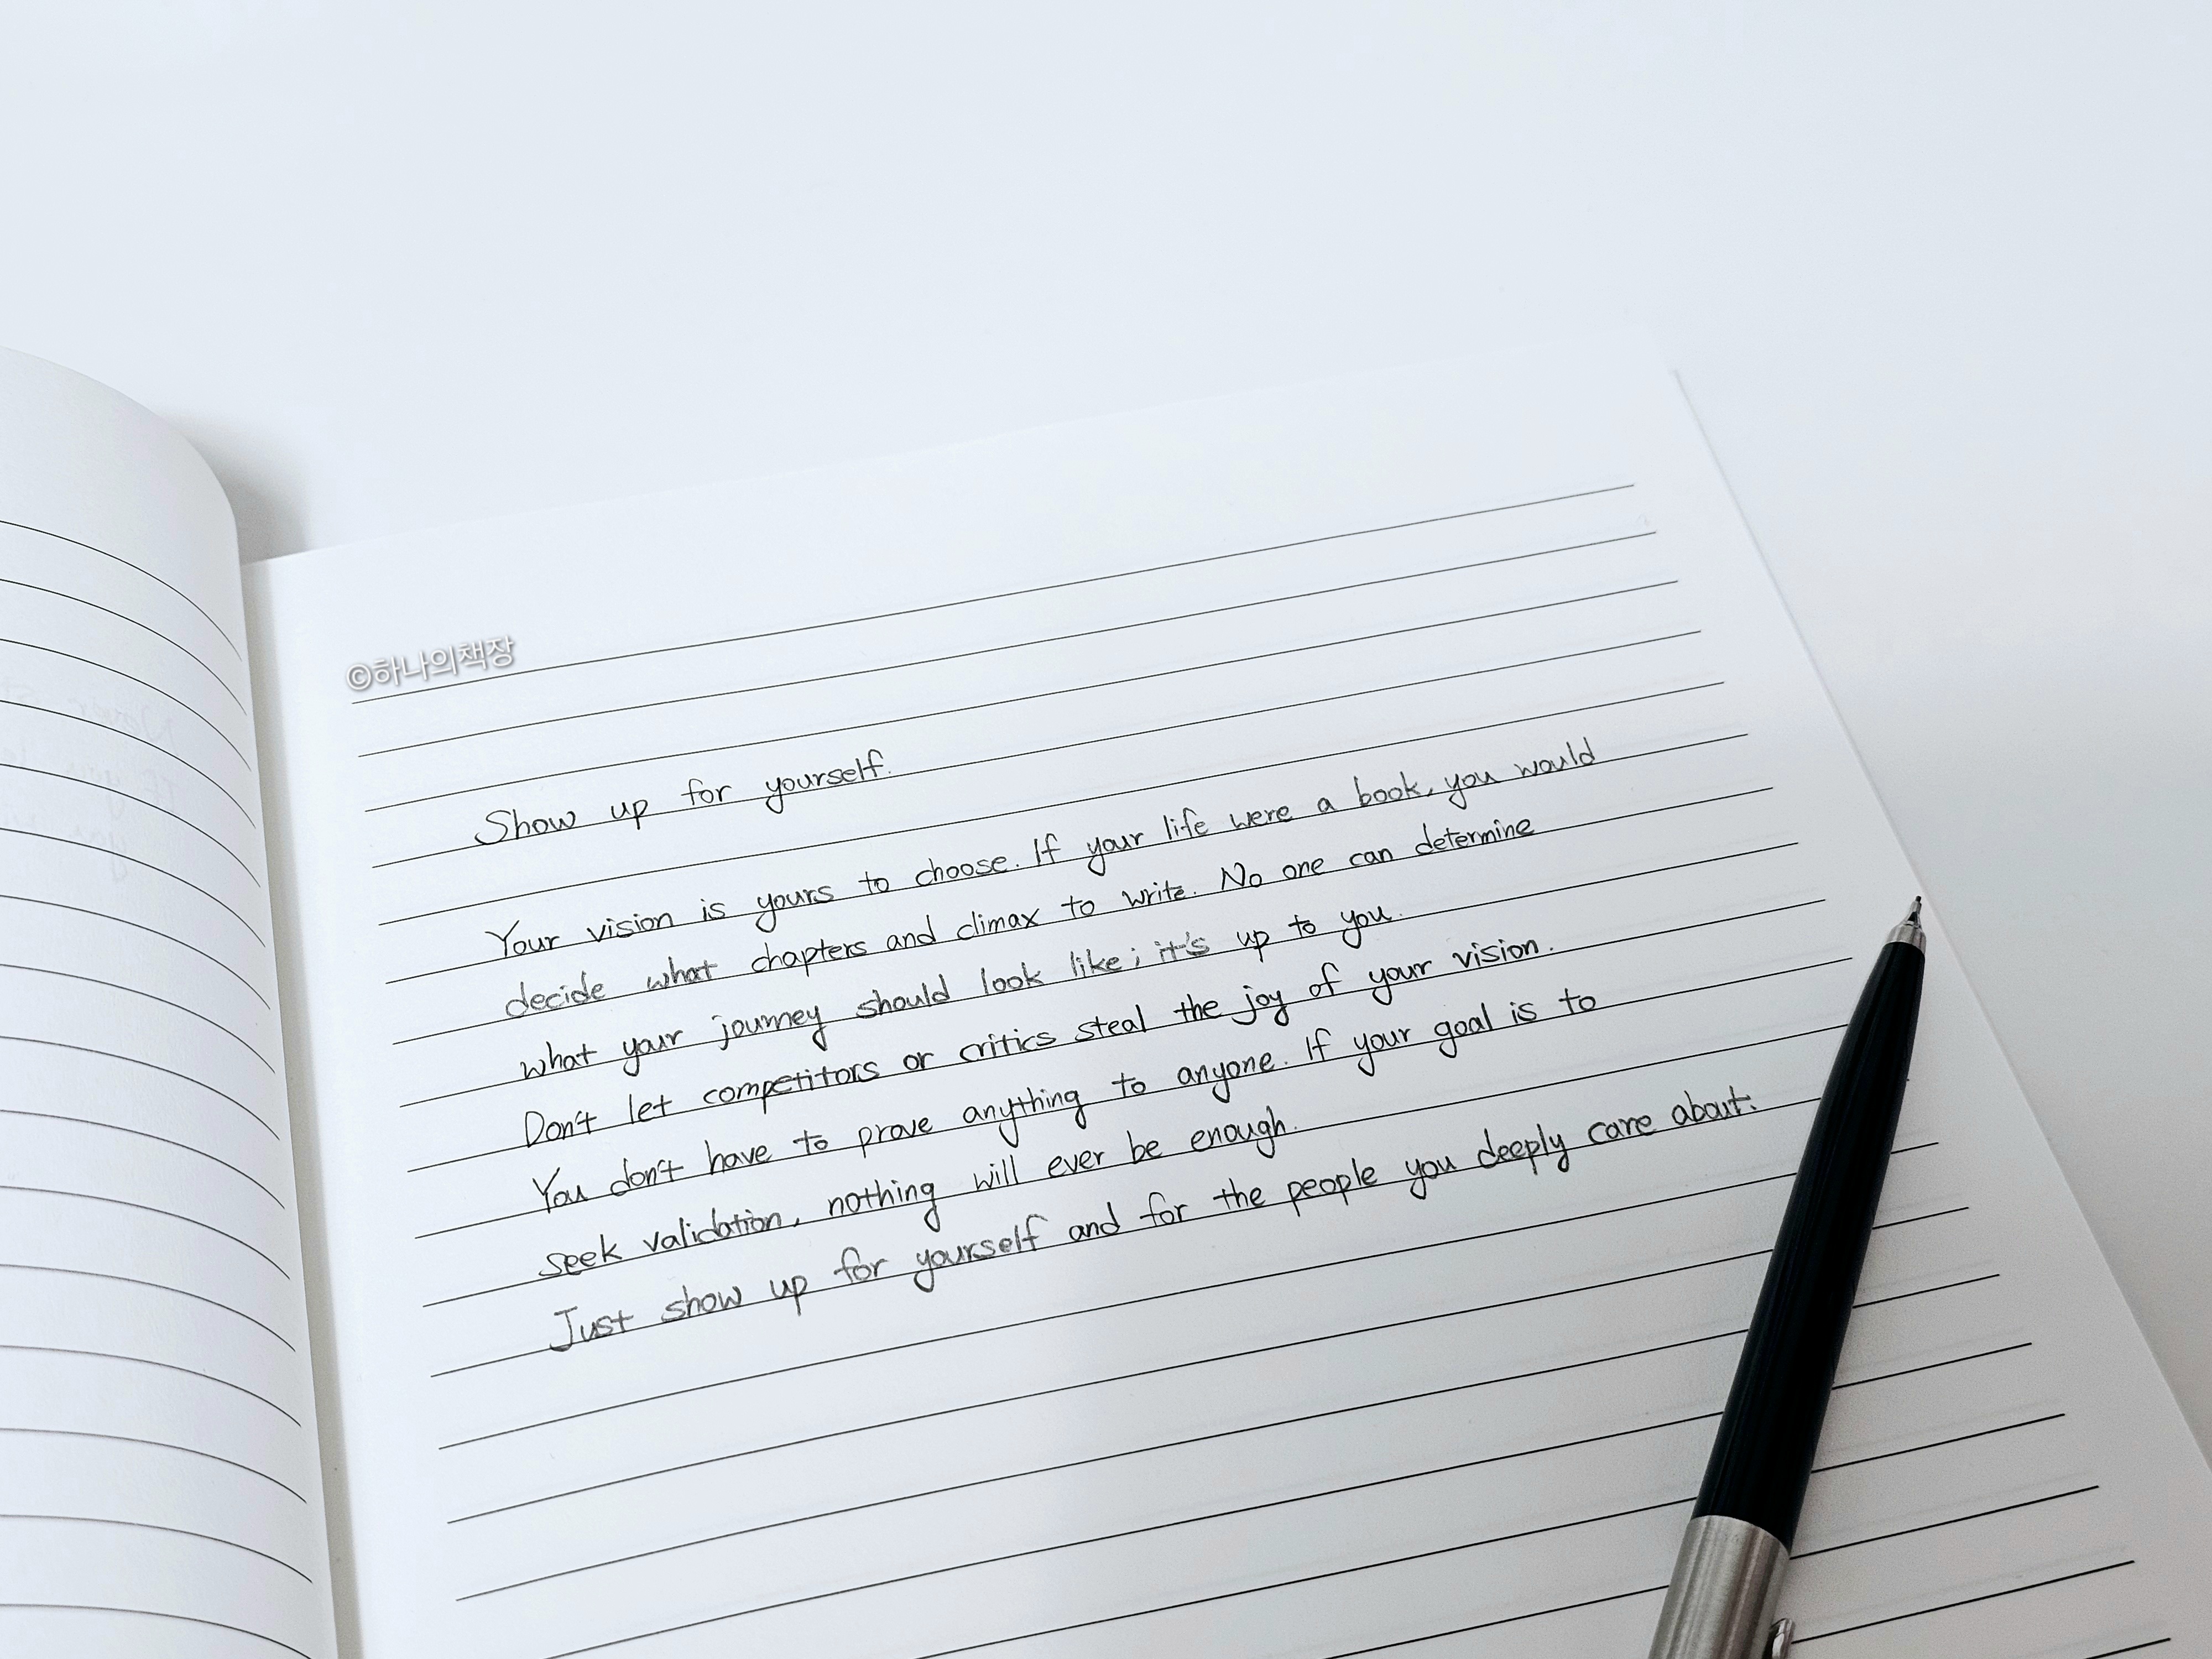 ©하나의책장
Show up for yourself.
Your vision is yours to choose. If your life were a book, you would
decide what chapters and climax to write. No one can determine
what your journey should look like; it's up to you.
Don't let competitors or critics steal the joy of your vision.
You don't have to prove anything to anyone. If your goal is to
seek validation, nothing will ever be enough.
Just show up for yourself and for the people you deeply care about.